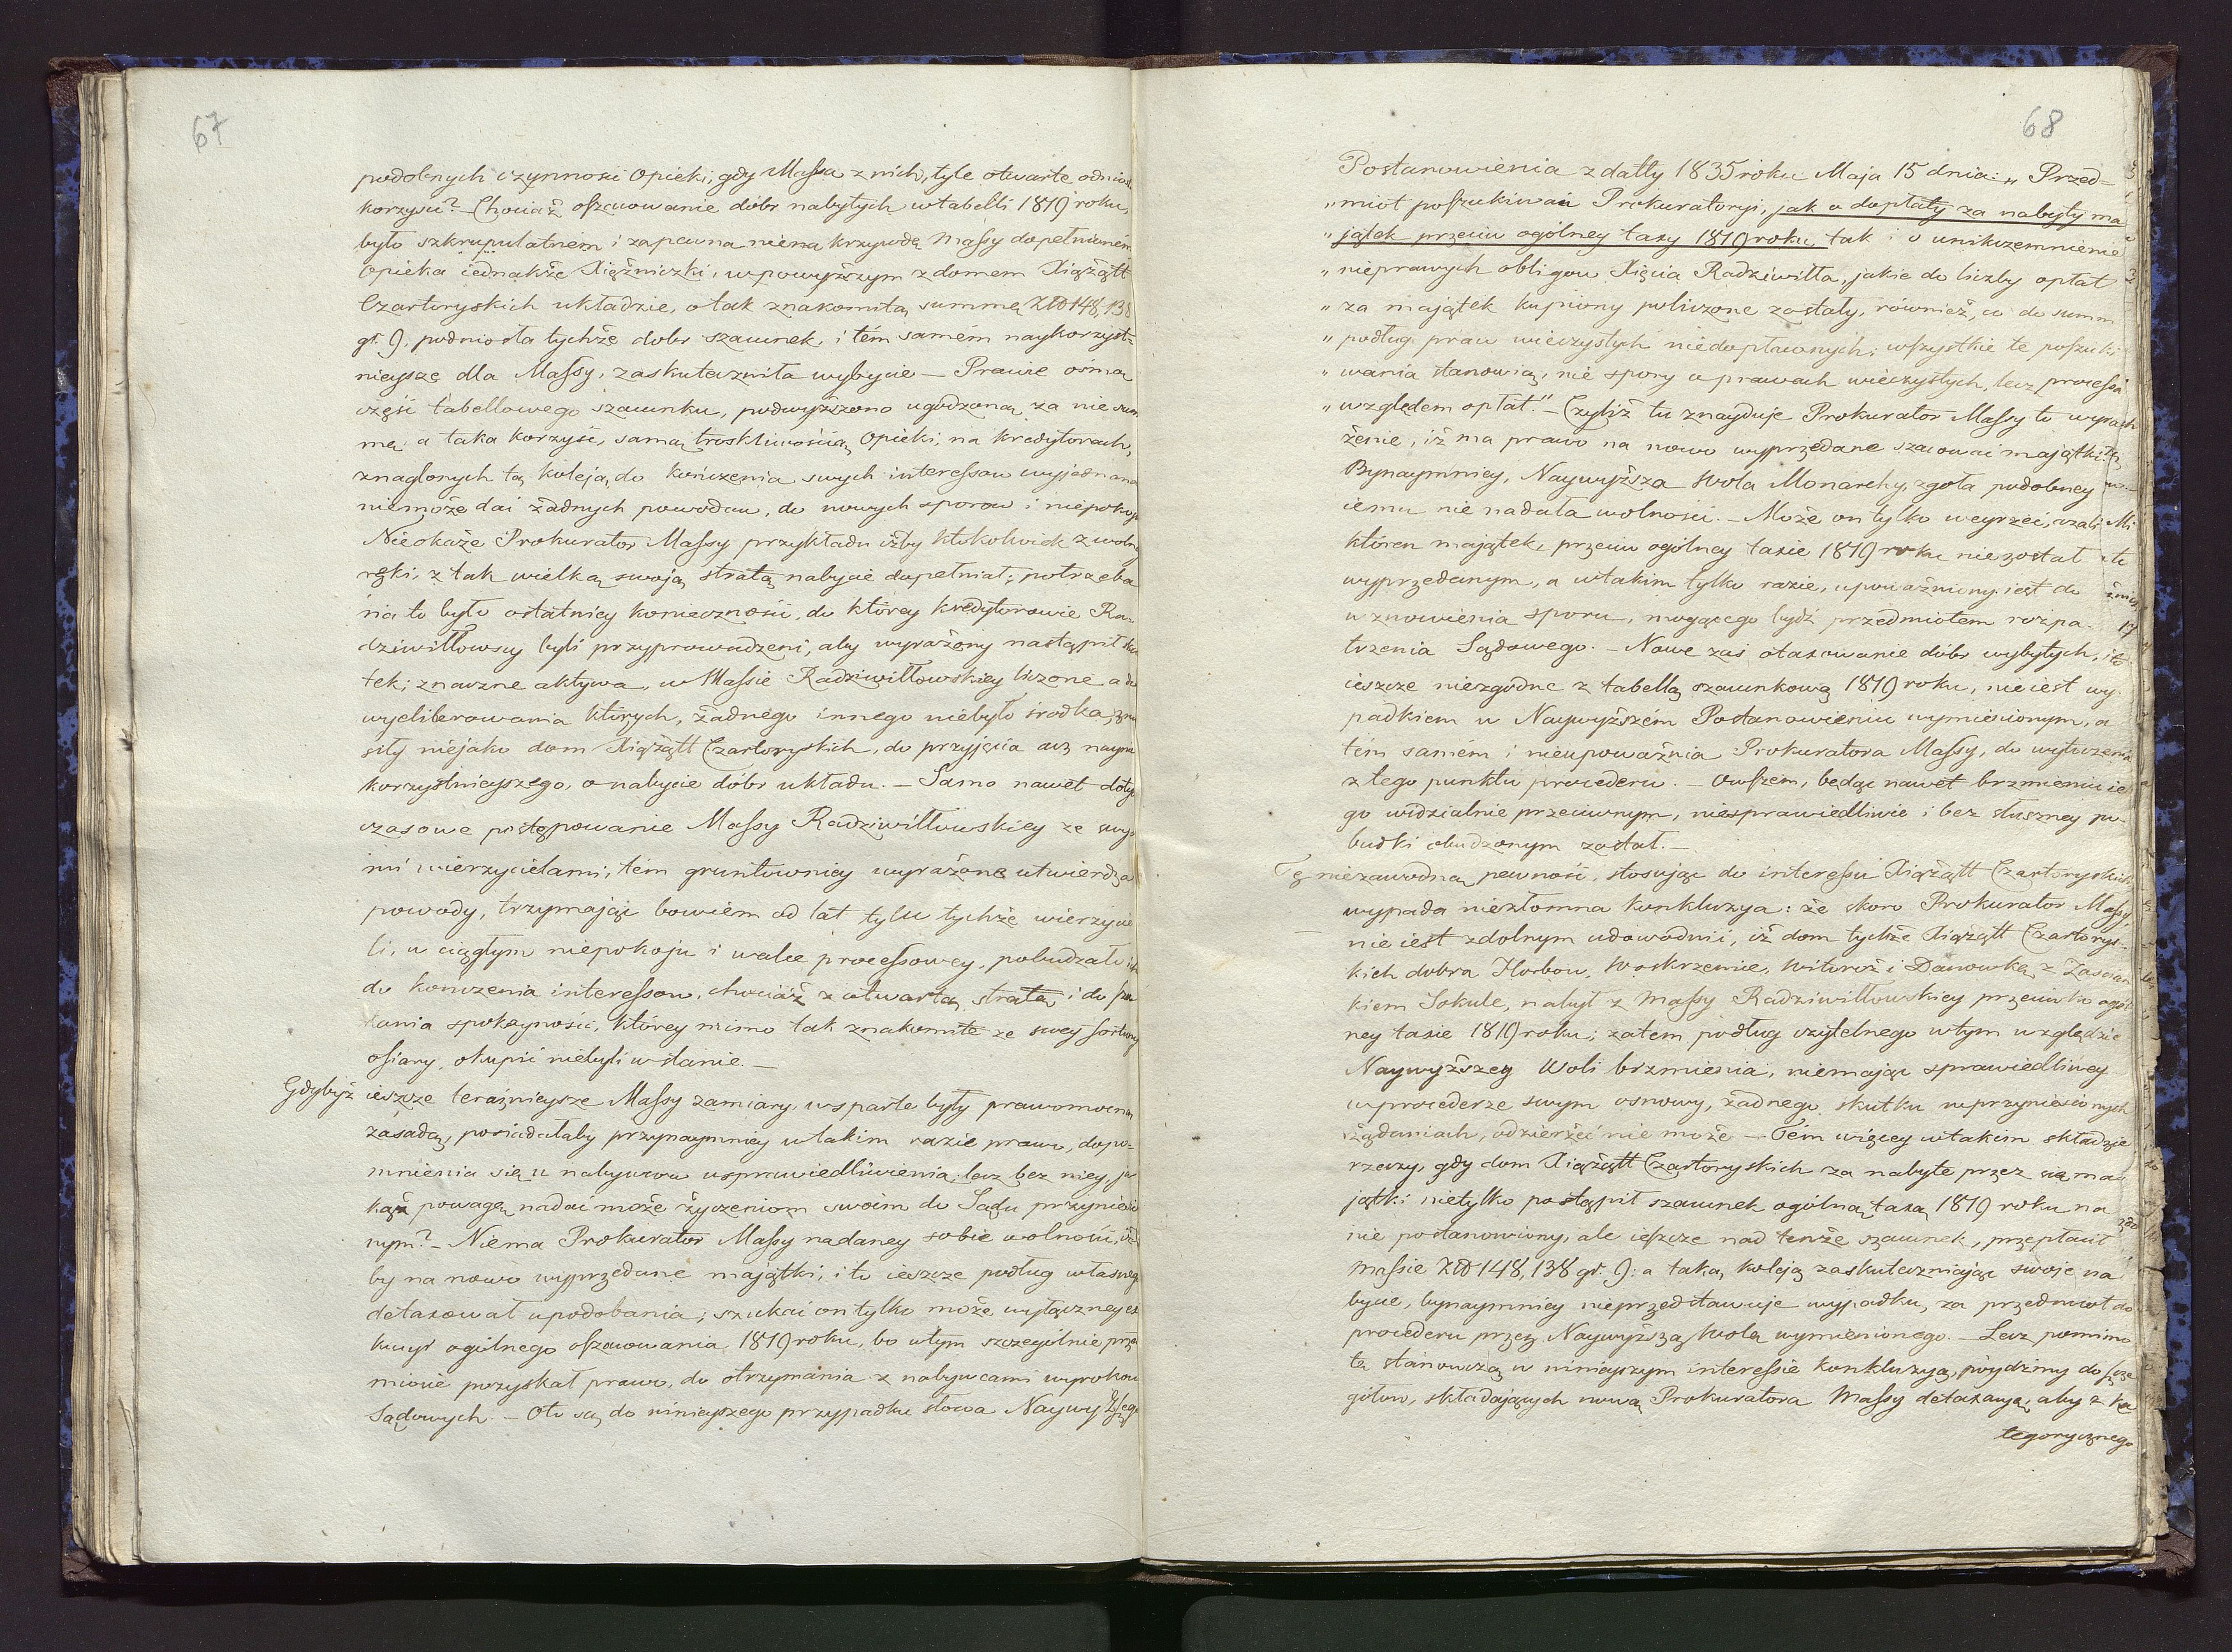 67
podobnych czynności Opieki, gdy Massa z nich, tyle otwarte odnios
korzyści? Chociaż oszacowanie dóbr nabytych w tabelli 1819 roku,
było szkrupulatném i zapewna niema krzywdą Massy dopełnioném
Opieka iednakże Xiężniczki, w powyższym z domem Xiążątt
Czartoryskich układzie, o tak znakomitą summę Złł 148,138
gr. 9. podniosła tychże dobr szacunek, i tém samém naykorzyst=
nieysze dla Massy, zaskuteczniła wybycie — Prawie ósmą
część tabellowego szacunku, podwyższono ugodzoną za nie sum
mę, a taka korzyść, samą troskliwością Opieki, na kredytorach,
znaglonych tą koleją, do kończenia swych interessow wyjednana
niemoże dać żadnych powodow, do nowych sporow i niepokoju
Nieokaże Prokurator Massy przykładu iżby ktokolwiek z wolney
ręki, z tak wielką swoją stratą nabycie dopełniał; potrzeba
na to było ostatniey konieczności, do którey kredytorowie Ra=
dziwiłłowscy byli przyprowadzeni, aby wyrażony nastąpił sku
tek; znaczne aktywa, w Massie Radziwiłłowskiey liczone a do
wyeliberowania których, żadnego innego niebyło środka, zmu
siły niejako dom Xiążątt Czartoryskich, do przyjęcia acz naymn
korzystnieyszego, o nabycie dóbr układu. — Samo nawet doty
czasowe postępowanie Massy Radziwiłłowskiey ze swy=
mi wierzycielami, tém gruntowniey wyrażone utwierdza
powody, trzymając bowiem od lat tylu tychże wierzycie
li, w ciągłym niepokoju i walce processowey, pobudzało ich
do kończenia interessow, chociaż z otwartą stratą i do
dania spokoyności, którey mimo tak znakomite ze swey fortuny
ofiary, okupić niebyli w stanie. —
Gdybyż ieszcze teraźnieysze Massy zamiary, wsparte były prawomocną
zasadą, posiadałaby przynaymniey w takim razie prawo, dopo=
mnienia się u nabywcow usprawiedliwienia, lecz bez niey, ja
kąż powagę nadać może życzeniom swoim do Sądu przynieśio
nym? — Niema Prokurator Massy nadaney sobie wolności, iż
by na nowo wyprzedane majątki, i to ieszcze podług własnego
detaxował upodobania; szukać on tylko może wyłączney ex
kucyi ogólnego oszacowania 1819 roku, bo w tym szczególnie prze
miocie pozyskał prawo, do otrzymania z nabywcami wyrokow
Sądowych. — Oto są do ninieyszego przypadku słowa Naywyższego
68
Postanowienia z datty 1835 roku Maja 15 dnia: „Przed=
„miot poszukiwań Prokuratoryi, jak o dopłaty za nabyty ma
„jątek przeciw ogólney taxy 1819 roku, tak i o unikczemnienie
„nieprawych obligow Xięcia Radziwiłła, jakie do liczby opłat
„za majątek kupiony policzone zostały, również, co do summ
„podług praw wieczystych niedopłaconych; wszystkie te poszuki
„wania stanowią, nie spory o prawach wieczystych, lecz processa
„względem opłat." — Czyliż tu znayduje Prokurator Massy to wyraź
żenie, iż ma prawo na nowo wyprzedane szacować majątki?
Bynaymniey, Naywyższa Wola Monarchy, zgoła podobney
iemu nie nadała wolności. — Może on tylko weyrzeć, czali
któren majątek, przeciw ogólney taxie 1819 roku niezostał
wyprzedanym, a w takim tylko razie, upoważniony iest do
wznowienia sporu, mogącego bydź przedmiotem rozpa=
trzenia Sądowego. — Nowe zaś otaxowanie dóbr wybytych, i to
ieszcze niezgodne z tabellą szacunkową 1819 roku, nieiest wy=
padkiem w Naywyższém Postanowieniu wymienionym, a
tém samém i nieupoważnia Prokuratora Massy, do wytoczenia
z tego punktu procederu. — Owszem, będąc nawet brzmieniu ie
go widzialnie przeciwnym, niesprawiedliwie i bez słuszney po=
budki obudzonym został. —
Tę niezawodną pewność, stosując do interessu Xiążątt Czartoryskich
wypada niezłomna konkluzya: że skoro Prokurator Massy,
nie iest zdolnym udowodnić, iż dom tychże Xiążątt Czartorys=
kich dobra Horbow, Woskrzenice, Witoroż i Danowkę, z Zascian
kiem Sokule, nabył z Massy Radziwiłłowskiey przeciwko ogól
ney taxie 1819 roku; zatem podług czytelnego w tym względzie
Naywyższey Woli brzmienia, niemając sprawiedliwey
w procederze swym osnowy, żadnego skutku w przyniesionych
żądaniach, odzierżeć nie może — Tém więcey w takim składzie
rzeczy, gdy dom Xiążątt Czartoryskich za nabyte przez się ma
jątki nietylko postąpił szacunek ogólną taxą 1819 roku na
nie postanowiony, ale ieszcze nad tenże szacunek, przepłacił
Massie Złł 148,138 gr. 9: a taką koleją zaskuteczniając swoje na
bycie, bynaymniey nieprzedstawuje wypadku, za przedmiot do
procederu przez Naywyższą Wolę wymienionego. — Lecz pomimo
tę stanowczą w ninieyszym interessie konkluzyą, póydźmy do szcze
gółow, składających nową Prokuratora Massy detaxacyą, aby z ka
tegorycznego